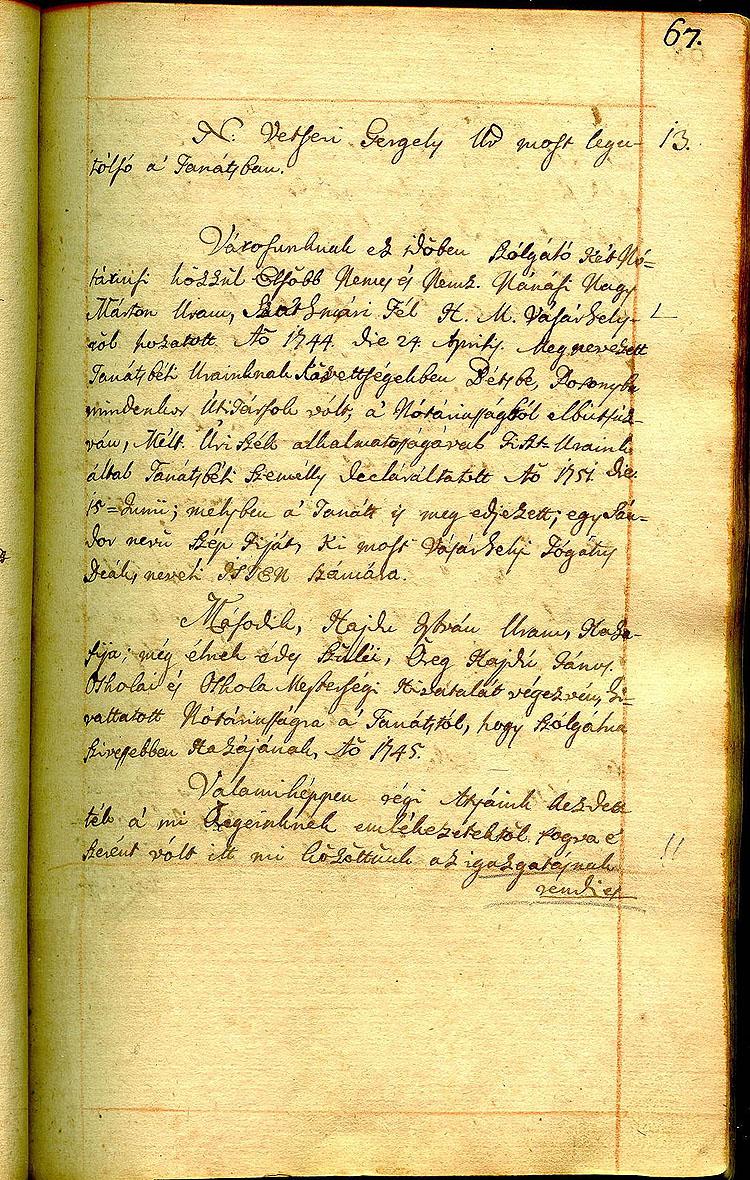 67.
N. Vetseri Gergely Ur most legu- 13.
tólsó a' Tanátsban.
Városunknak ez időben szolgáló két Nó=
táriusi közzűl Elsőbb Nemes és Nemz. Nánási Nagy
Márton Uram, Szathmári Fél H. M. Vásárhely-
ről hozatott Aō 1744. die 24 Aprilis. Meg nevezett
Tanátsbéli Urainknak Követtségekben Bétsbe, Posonyba
mindenkor Úti Társok vólt, a' Nótáriusságból elbútsúz-
ván, Mélt. Úri Szék alkalmatosságával Tiszt-Uraink
által Tanátsbéli Személly declaráltatott Aō 1751. die
15=Junii; melyben a' Tanáts is meg edjezett; egy Sán-
dor nevű szép Fiját, ki most Vásárhelyi Tógátus
Deák, neveli ISTEN számára.
Második, Hajdu István Uram, Haza-
fija; még élnek édes Szülei, Öreg Hajdú János.
Oskolai és Oskola Mesterségi Hivatalát végezvén, hi-
vattatott Nótáriusságra a' Tanátstól, hogy szolgálna
szívessebben Hazájának, Aō 1745.
Valamiképpen régi Atyáink kezdet-
ték a' mi Öregeinknek emlékezetektől fogva e'
szerént vólt itt mi közöttünk az igazgatásnak !!
rendi es